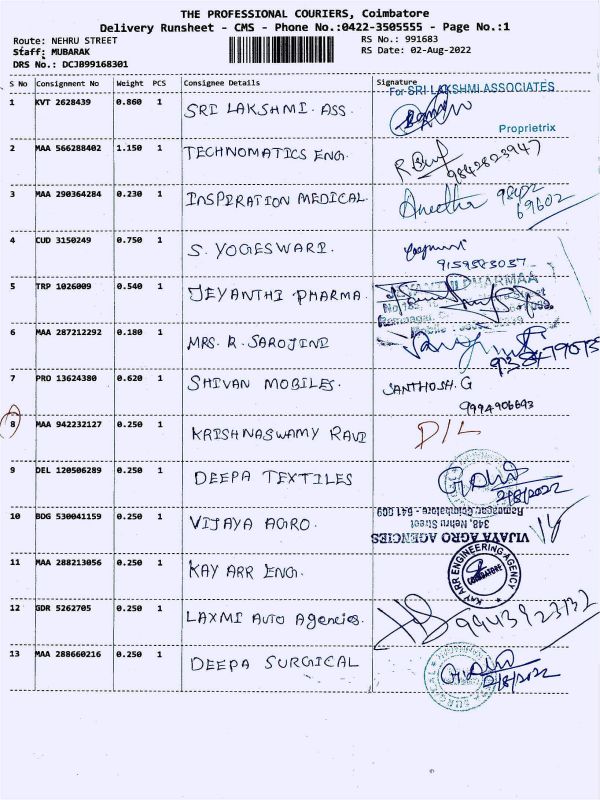 THE PROFESSIONAL COURIERS, Coimbatore
Delivery Runsheet - CMS - Phone No.:0422-3505555 - Page No.:1
Route: NEHRU STREET
RS No.: 991683
Staff: MUBARAK
RS Date: 02-Aug-2022
DRS No.: DCJB99168301
S No Consignment No Weight PCS Consignee Details Signature
For SRI LAKSHMI ASSOCIATES
1 KVT 2628439 0.860 1 SRI LAKSHMI. ASS.
Proprietrix
2 MAA 566288402 1.150 1 TECHNOMATICS ENG. 9842823947
3 MAA 290364284 0.230 1 INSPIRATION MEDICAL. Aneetha 98422 69602
4 CUD 3150249 0.750 1 S. YOGESWARI.
9159583037
5 TRP 1026009 0.540 1 JEYANTHI PHARMA.
6 MAA 287212292 0.180 1 MRS. R. SAROJINI
7 PRO 13624380 0.620 1 SHIVAN MOBILES. SANTHOSH. G
9994906643
8 MAA 942232127 0.250 1 KRISHNASWAMY RAVI D/L
9 DEL 120506289 0.250 1 DEEPA TEXTILES
2/8/2022
10 BDG 530041159 0.250 1 VIJAYA AGRO.
VIJAYA AGRO AGENCIES
348, Nehru Street
Ramnagar, Coimbatore - 641 009
11 MAA 288213056 0.250 1 KAY ARR ENG. KAY ARR ENGINEERING AGENCY COIMBATORE
12 GDR 5262705 0.250 1 LAXMI AUTO Agencies. 9943923732
13 MAA 288660216 0.250 1 DEEPA SURGICAL
2/8/2022